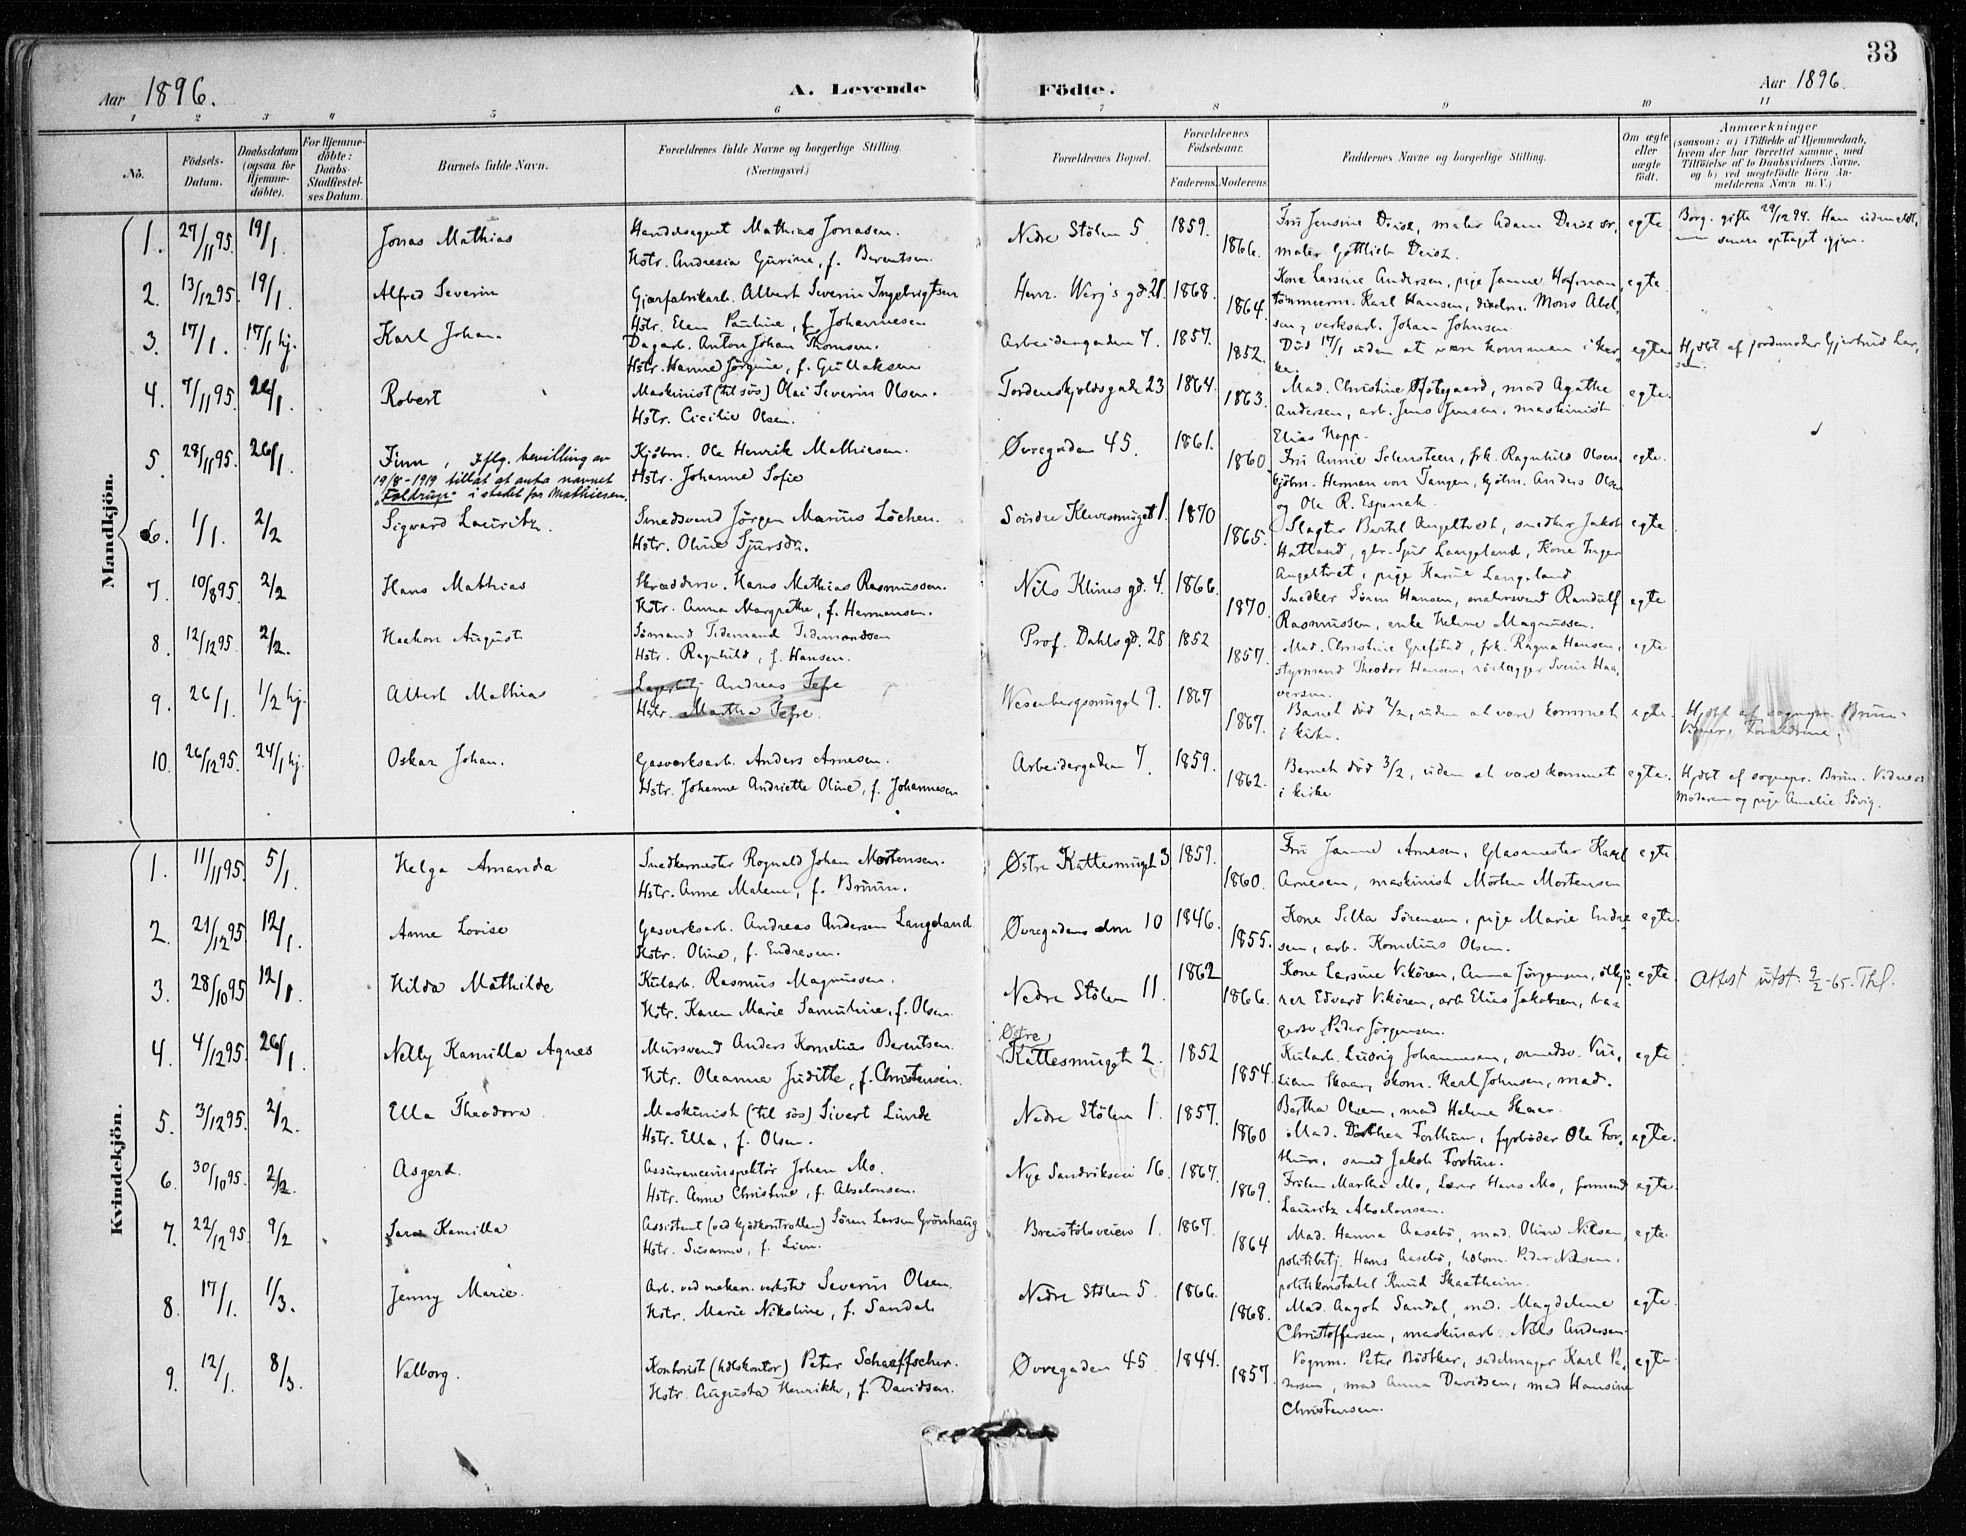 33
Aar 1896. A. Levende Födte. Aar 1896.
1 2 3 4 5 6 7 8 9 10 11
No. Födsels-Datum. Daabsdatum (ogsaa for Hjemme-döbte). For Hjemme-döbte: Daabs-Stadfæstel-ses Datum. Barnets fulde Navn. Forældrenes fulde Navne og borgerlige Stilling. (Næringsvei.) Forældrenes Bopæl. Forældrenes Födselsaar. Faderens. Moderens. Faddernes Navne og borgerlige Stilling. Om ægte eller uægte födt. Anmærkninger (saasom: a) i Tilfælde af Hjemmedaab, hvem der har forrettet samme, med Tilföielse af to Daabsvidners Navne, og b) ved uægtefödte Börn Anmelderens Navn m. V.)
Mandkjön.
1. 27/11 95. 19/1. Jonas Mathias Handelsagent Mathias Jonasen. Nedre Stölen 5. 1859. Fru Jensine Deisz, maler Adam Deisz sr, egte Borg. gifte 29/12 94. Han udmeldt,
Hstr. Andresia Gurine, f. Berentsen. 1866. maler Gottlieb Deisz. senere optaget igjen.
2. 13/12 95. 19/1. Alfred Severin Gjærfabrikarb. Albert Severin Ingebrigtsen Henr. Wergs gd. 21. 1868. Kone Larsine Andersen, pige Janne Hofman, egte.
Hstr. Elen Pauline, f. Johannesen 1864. tömmerm. Karl Hansen, Mons Abel-
sen, verksarb. Johan Johnsen.
3. 17/1. 17/1 hj. Karl Johan. Dagarb. Anton Johan Thomsen. Arbeidergaden 7. 1857. Död 17/1 uden at være kommen i kir- egte Hjdbt af jordmoder Gjertrud Lar-
Hstr. Hanne Jörgine, f. Gullaksen 1852. ke. sen.
4. 7/11 95. 26/1. Robert Maskinist (til sös) Olai Severin Olsen. Tordenskjoldsgade 23 1864. Mad. Christine, mad Agathe egte.
Hstr. Cicilie Olsen. 1863. Andersen, arb. Jens Jensen, maskinist
Elias Kopp.
5. 28/11 95. 26/1. Finn, Iflg. bevilling av Kjöbm. Ole Henrik Mathiesen. Övregaden 45. 1861. Fru Annie, frk. Ragnhild Olsen, egte.
19/8-1919 tillat at anta navnet Hstr. Johanne Sofie 1860 kjöbm. Herman von Tangen, kjöbm. Anders Olsen
"Foldrup" i stedet for Mathiesen. og Ole R. Espenak.
6. 1/1. 2/2 Sigvard Lauritz. Smedsvend Jörgen Marius Löchen. Söndre Kleivesmuget 1. 1870 Slagter Bertel Angeltvedt, snedker Jakob egte
Hstr. Oline Sjursdtr. 1865. Hatland, gbr. Sjur Langeland, Kone Inger
Angeltvet, pige Karine Langeland
7. 10/8 95. 2/2 Hans Mathias Skræddersv. Hans Mathias Rasmussen. Nils Klims gd. 4. 1866. Snedker Sören Hansen, malersvend Randulf egte
Hstr. Anna Margrethe, f. Hermansen. 1870. Rasmussen, enke Helene Magnussen.
8. 12/12 95. 2/2. Haakon August Sömand Tidemand Tidemandsen Prof. Dahls gd. 28 1852 Mad. Christine Grefstad, frk. Ragna Hansen, egte.
Hstr. Ragnhild, f. Hansen. 1857. styrmand Theodor Hansen, rörlægger Svein Haa-
versen.
9. 26/1. 1/2 hj. Albert Mathias Andreas Tefre Wesenbergssmuget 9. 1867 Barnet död 3/2, uden at være kommet egte. Hjdbt af sognepr. Bruun.
Hstr. Martha Tefre. 1867. i kirke. Vidner: Forældrene.
10. 26/12 95. 24/1 hj. Oskar Johan. Gasverksarb. Anders Arnesen. Arbeidergaden 7. 1859. Barnet död 3/2, uden at være kommet egte. Hjdbt af sognepr. Bruun. Vidner:
Hstr. Johanne Andriette Oline, f. Johannesen 1862. i kirke Moderen og pige Amalie Sövig.
Kvindekjön.
1. 11/11 95. 5/1. Helga Amanda Snedkermester Rognald Johan Mortensen. Østre Kattesmuget 3 1859. Fru Janne Arnesen, Glasmester Karl egte
Hstr. Anne Malene, f. Bruun. 1860. Arnesen, maskinist Morten Mortensen
2. 21/12 95 12/1. Anne Lovise Gasverksarb. Andreas Andersen Langeland Övregaden 10 1846. Kone Silla Sörensen, pige Marie Endre- egte.
Hstr. Oline, f. Endresen. 1855. sen, arb. Kornelius Olsen.
3. 28/10 95 12/1. Hilda Mathilde Kularb. Rasmus Magnussen. Nedre Stölen 11. 1862 Kone Larsine Vikören, Anna Jörgensen, egte. Attest utst. 9/2-65. Thl.
Hstr. Karen Marie Samuline, f. Olsen. 1866. Edvard Vikören, arb Elias Jakobsen, ba-
gersv. Peder Jörgensen.
4. 4/12 95. 26/1. Nelly Kamilla Agnes Mursvend Anders Kornelius Berentsen. Østre Kattesmuget 2. 1852 Kularb. Ludvig Johannesen, smedsv. egte
Hstr. Oleanna Juditte, f. Christensen. 1854. Skaar, skom. Karl Johnsen, mad.
Bertha Olsen, mad Helene Skaar.
5. 3/12 95. 2/2. Ella Theodora. Maskinist (til sös) Sivert Linde Nedre Stölen 1. 1857. Mad. Dorthea Forthun, fyrböder Ole For- egte.
Hstr. Ella, f. Olsen. 1860 thun, smed Jakob Fortun.
6. 30/10 95. 2/2. Asgerd. Assuranceinspektör Johan Mo. Nye Sandviksvei 16. 1867. Fröken Martha Mo, Lærer Hans Mo, formand egte.
Hstr. Anne Christine, f. Absalonsen. 1869. Lauritz Absalonsen.
7. 22/12 95. 9/2 Sara Kamilla Assistent (ved kjödkontrollen) Sören Larsen Grönhaug Breistölsveien 1. 1867. Mad. Hanna Aasebö, mad. Oline Nilsen, egte.
Hstr. Susanne, f. Lien. 1864 politibetj. Hans Aasebö, Peder Nilsen,
politikonstabel Knud Skaatheim.
8. 17/1. 1/3. Jenny Marie. Arb. ved mekan. verksted Severin Olsen. Nedre Stölen 5. 1866. Mad. Aagot Sandal, mad. Magdelene egte.
Hstr. Marie Nikoline, f. Sandal. 1868. Christoffersen, maskinarb. Nils Andersen.
9. 12/1. 8/3. Valborg. Kontorist (tolskontor) Peter Schaeffscher. Övregaden 45. 1844. Vognm. Peter Bödtker, sadelmager Karl Pe- egte.
Hstr. Augusta Henrikke, f. Davidsen. 1857. tersen, mad Anna Davidsen, mad Hansine
Christensen.